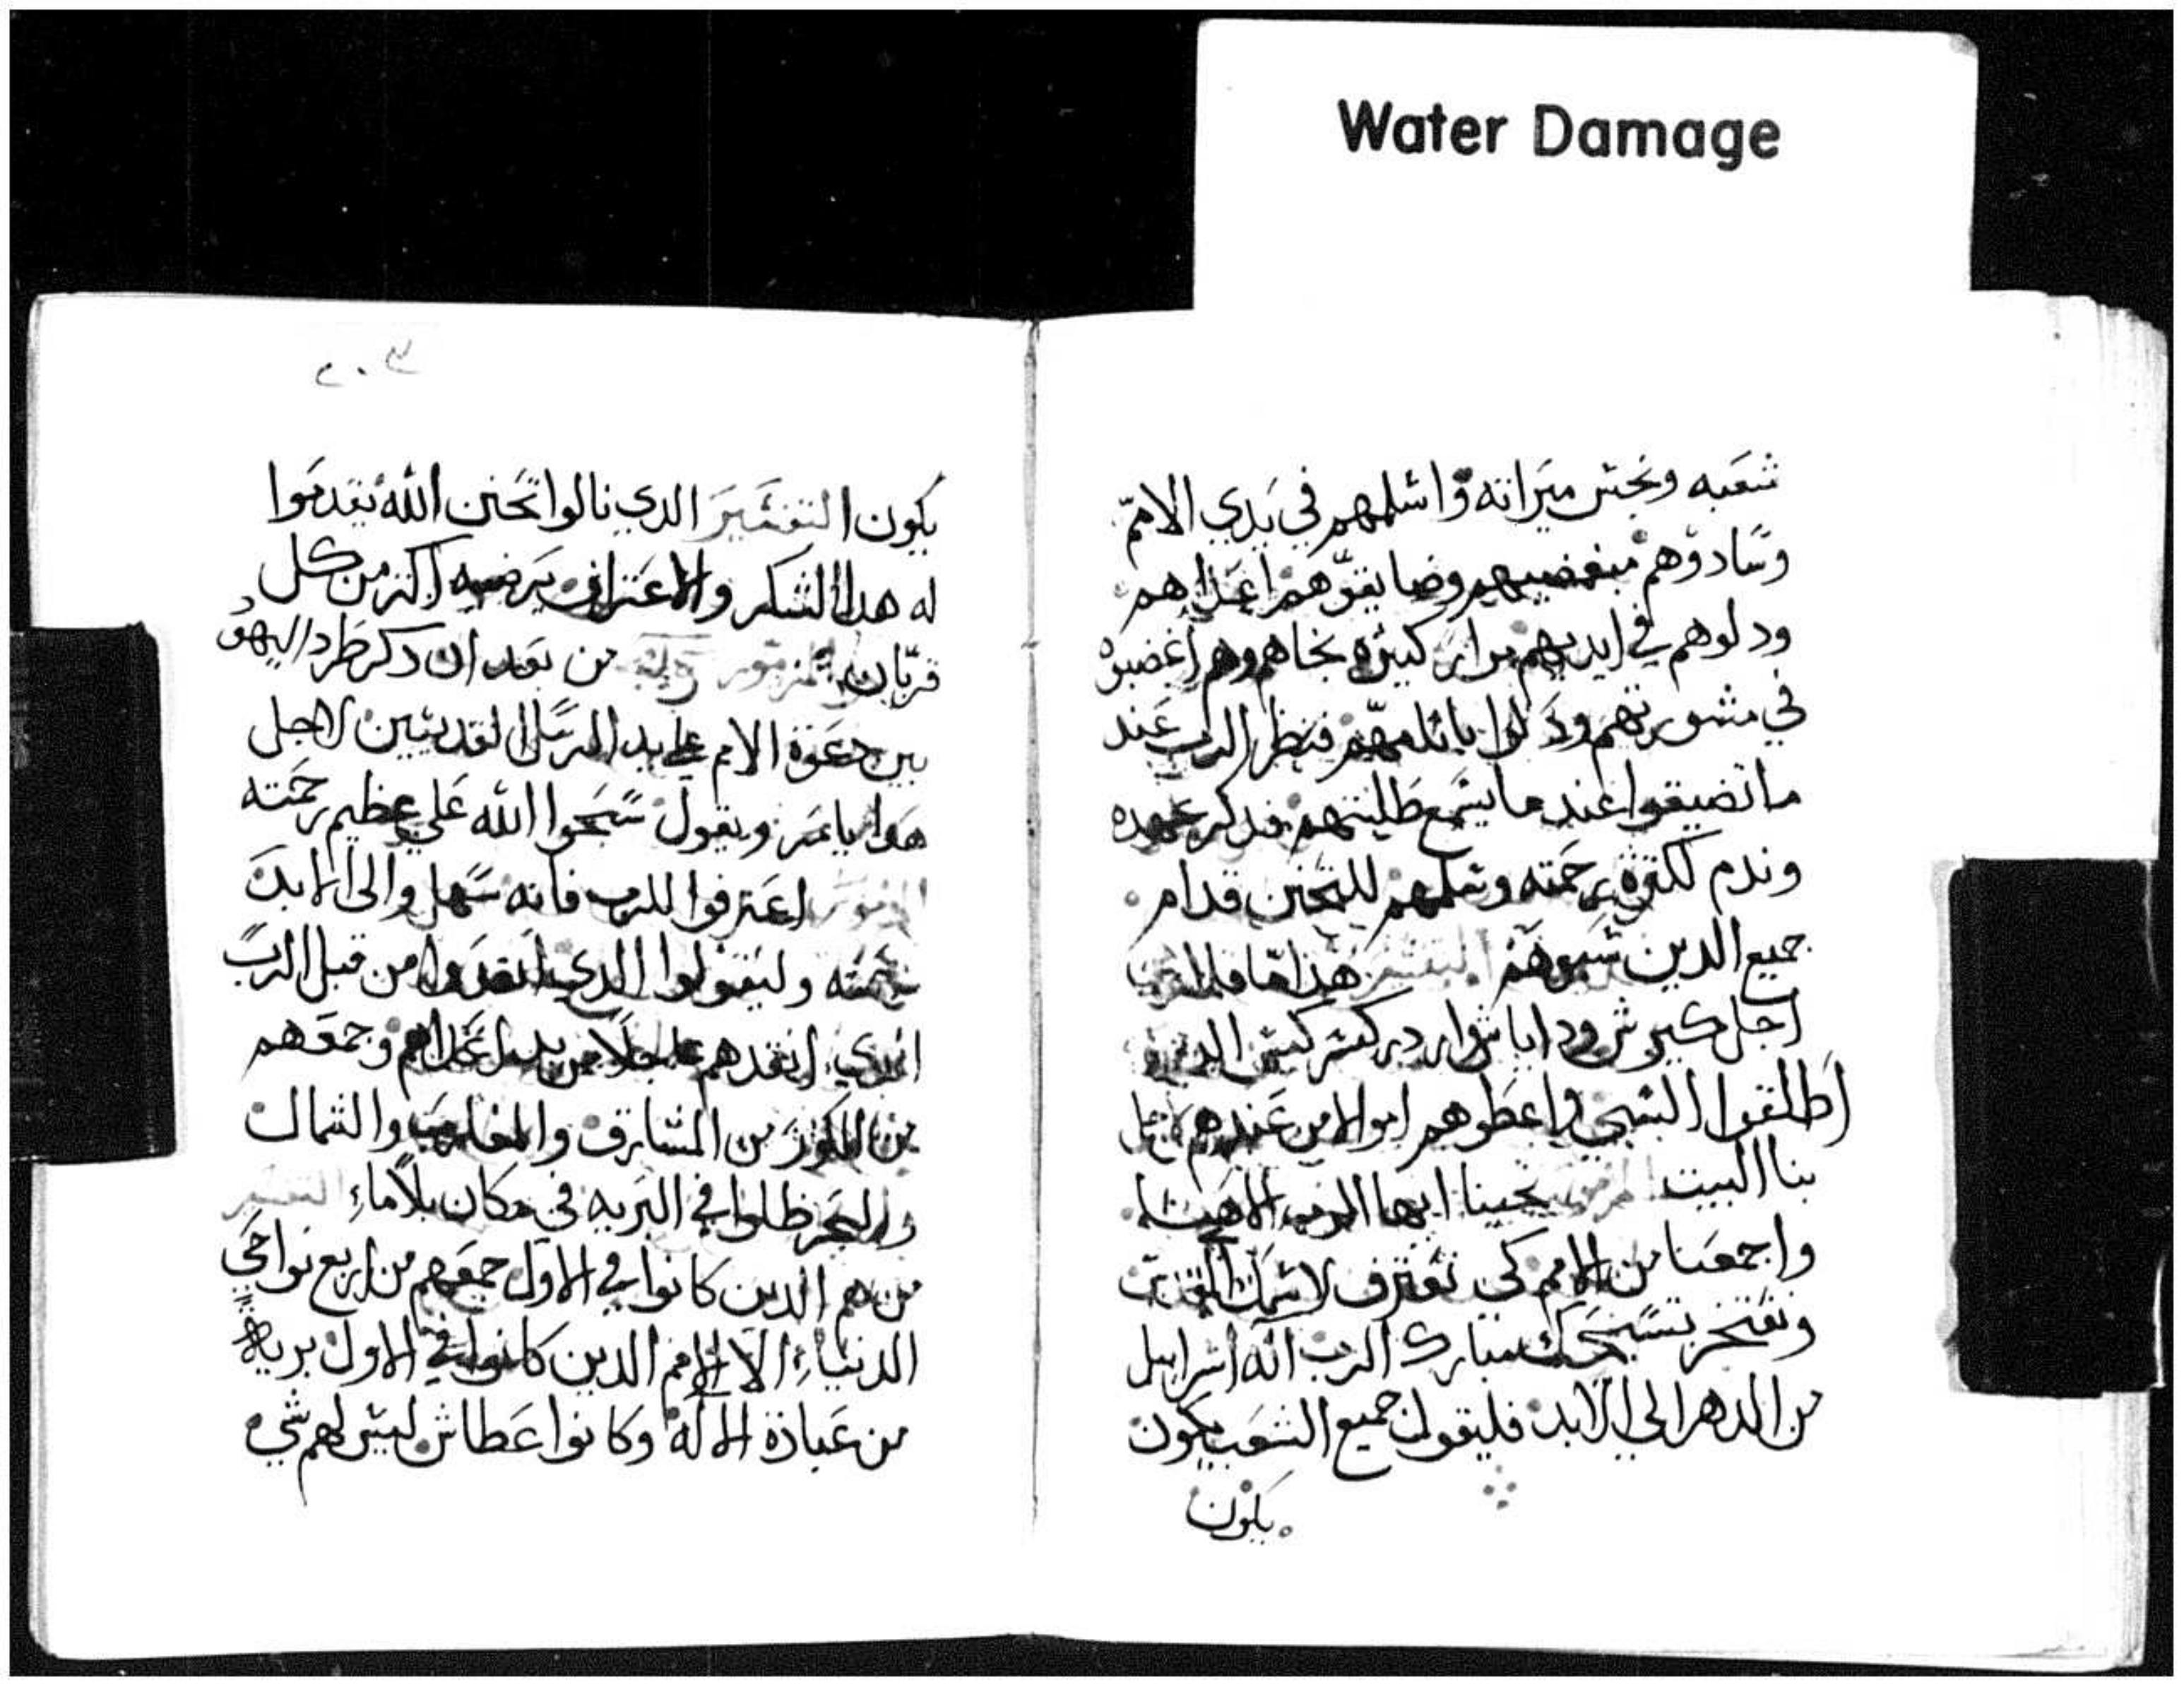 Water Damage
شعبه ونجس ميراته واسلمهم في يدي الامم
وسادوهم مبغضيهم وضايقوهم اعداهم
ودلوهم في ايديهم مرار كتيره نجاهم وهم اغضبوه
في مشورتهم ودلوا باتامهم فنظر الرب عند
ما تضيقوا عند ما يسمع طلبتهم فدكر عهده
وندم لكترة رحمته وسلمهم للتحنن قدام
جميع الدين سبوهم التفسير هدا
اجل كيرش وداياش وار
اطلقوا السبي واعطوهم اموالا من عندهم
بنا البيت نجينا ايها الرب الاهنا
واجمعنا من الامم كي نعترف لاسمك القدوس
ونفتخر بتسبحتك مبارك الرب اله اسراييل
من الدهر الي الابد فليقول جميع الشعب يكون
يكون
٢٠٣
يكون التفسير الدي نالوا تحنن الله يقدموا
له هدا الشكر والاعتراف يرضيه اكتر من كل
قربان من بعد ان دكر طرد اليهود
بين دعوة الامم علي يد الرسل القديسين لاجل
هدا يامر ويقول سبحوا الله علي عظيم رحمته
المزمور اعترفوا للرب فانه سهل والى الابد
رحمته وليقولوا الدي انقدوا من قبل الرب
الدي انقدهم من يد اعداهم وجمعهم
من الكور من المشارق والمغارب والشمال
والبحر ظلوا في البريه في مكان بلا ماء التفسير
من هم الدين كانوا في الاول جمعهم من اربع نواحي
الدنيا الا الامم الدين كانوا في الاول بريه
من عبادة الاله وكانوا عطاش ليس لهم شي